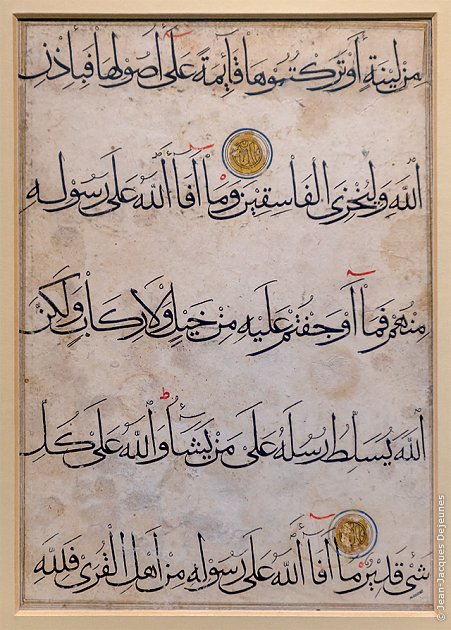 مِن لِينَةٍ أَوْ تَرَكْتُمُوهَا قَآئِمَةً عَلَىٰٓ أُصُولِهَا فَبِإِذْنِ
اللَّهِ وَلِيُخْزِيَ الْفَاسِقِينَ وَمَآ أَفَآءَ اللَّهُ عَلَىٰ رَسُولِهِ
مِنْهُمْ فَمَآ أَوْجَفْتُمْ عَلَيْهِ مِنْ خَيْلٍ وَلَا رِكَابٍ وَلَٰكِنَّ
اللَّهَ يُسَلِّطُ رُسُلَهُ عَلَىٰ مَن يَشَآءُ وَاللَّهُ عَلَىٰ كُلِّ
شَيْءٍ قَدِيرٌ مَآ أَفَآءَ اللَّهُ عَلَىٰ رَسُولِهِ مِنْ أَهْلِ الْقُرَىٰ فَلِلَّهِ
© Jean-Jacques Dejeunes